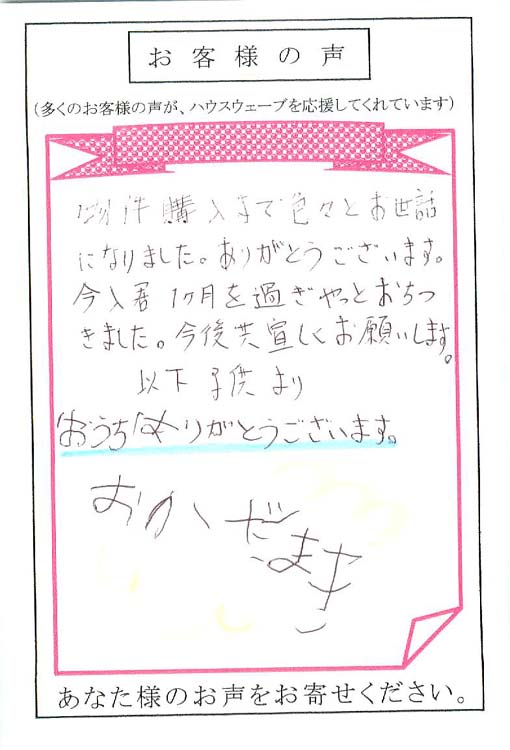 お客様の声
(多くのお客様の声が、ハウスウェーブを応援してくれています)
物件購入まで色々とお世話
になりました。ありがとうございます。
今入居1ヶ月を過ぎやっとおちつ
きました。今後共宜しくお願いします。
以下子供より
おうちありがとうございます。
あなた様のお声をお寄せください。